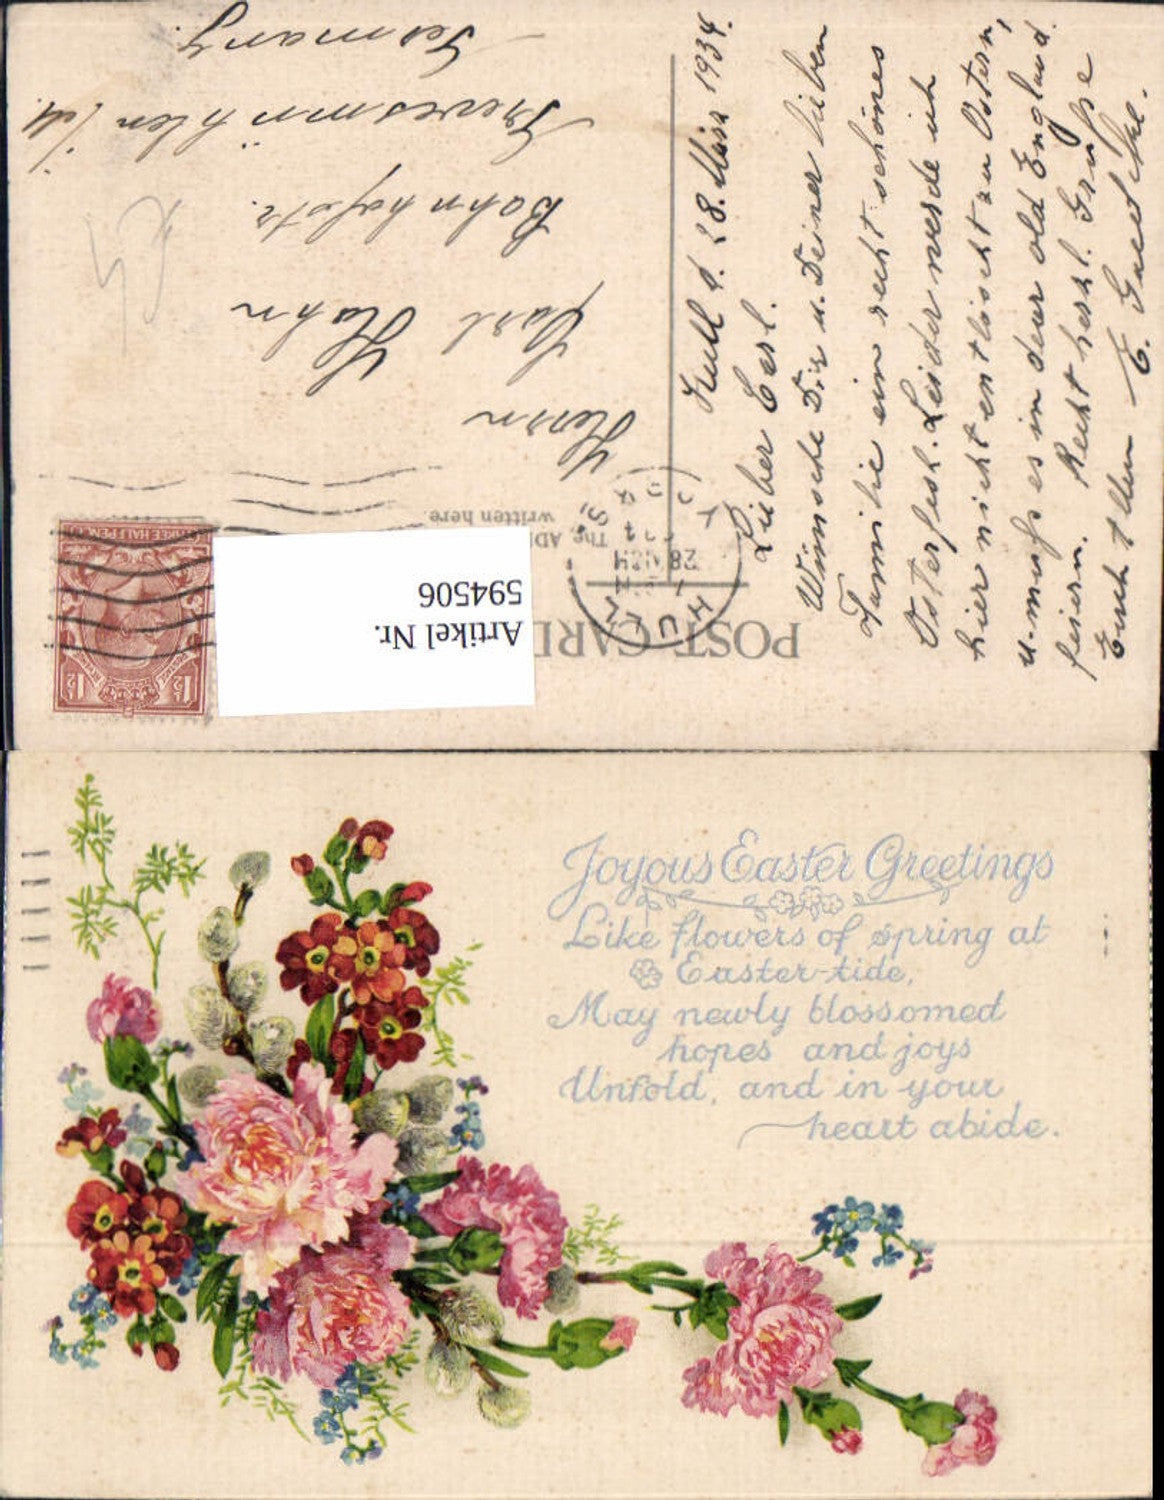 POST CARD
The AD
written here.
Artikel Nr.
594506
HULL
28 MCH
1½ 1½
THREE HALF PENCE
Herrn
Carl Hahn
Bahnhofstr.
Grevesmühlen i/M.
Germany.
Hull d. 28. März 1934.
Lieber Carl.
Wünsche Dir u. Deiner lieben
Familie ein recht schönes
Osterfest. Leider werde ich
hier nicht entlöscht zu Ostern,
u. muss es in dear old England
feiern. Recht herzl. Grüsse
Euch Allen E.
Joyous Easter Greetings
Like flowers of spring at
Easter-tide,
May newly blossomed
hopes and joys
Unfold, and in your
heart abide.